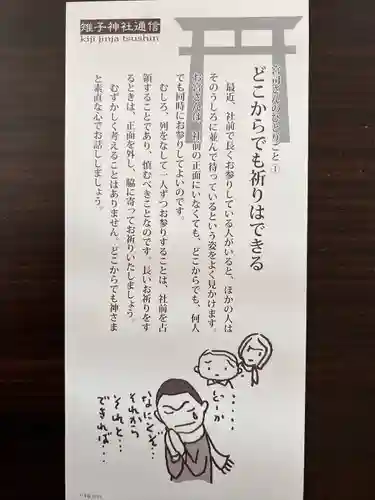 雉子神社通信
kiji jinja tsushin
宮司さんのひとりごと①
どこからでも祈りはできる
最近、社前で長くお参りしている人がいると、ほかの人は
そのうしろに並んで待っているという姿をよく見かけます。
お宮さんは、社前の正面にいなくても、どこからでも、何人
でも同時にお参りしてよいのです。
むしろ、列をなして一人ずつお参りすることは、社前を占
領することであり、慎むべきことなのです。長いお祈りをす
るときは、正面を外し、脇に寄ってお祈りいたしましょう。
むずかしく考えることはありません。どこからでも神さま
と素直な心でお話ししましょう。
・・・・・
どーか
なにとぞ…
それから
それと…
できれば…